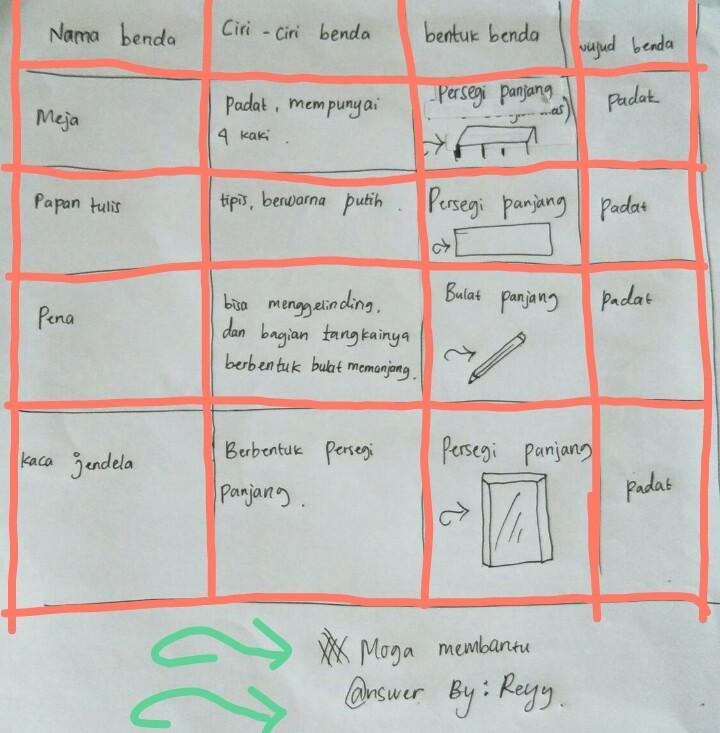 Nama benda
Ciri - Ciri benda
bentuk benda
wujud benda
Meja
Padat, mempunyai
4 kaki.
Persegi panjang
Padat
Papan tulis
tipis, berwarna putih.
Persegi panjang
padat
Pena
bisa menggelinding,
dan bagian tangkainya
berbentuk bulat memanjang.
Bulat panjang
padat
kaca jendela
Berbentuk Persegi
Panjang.
Persegi panjang
padat
Moga membantu
@nswer By : Reyy.